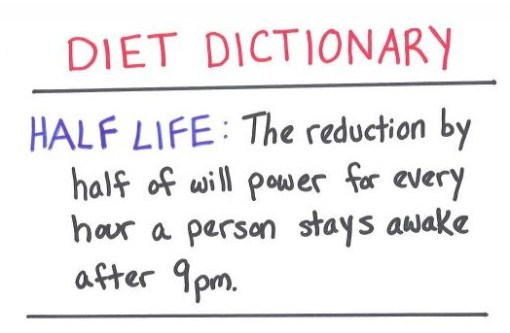 DIET DICTIONARY
HALF LIFE: The reduction by
half of will power for every
hour a person stays awake
after 9pm.